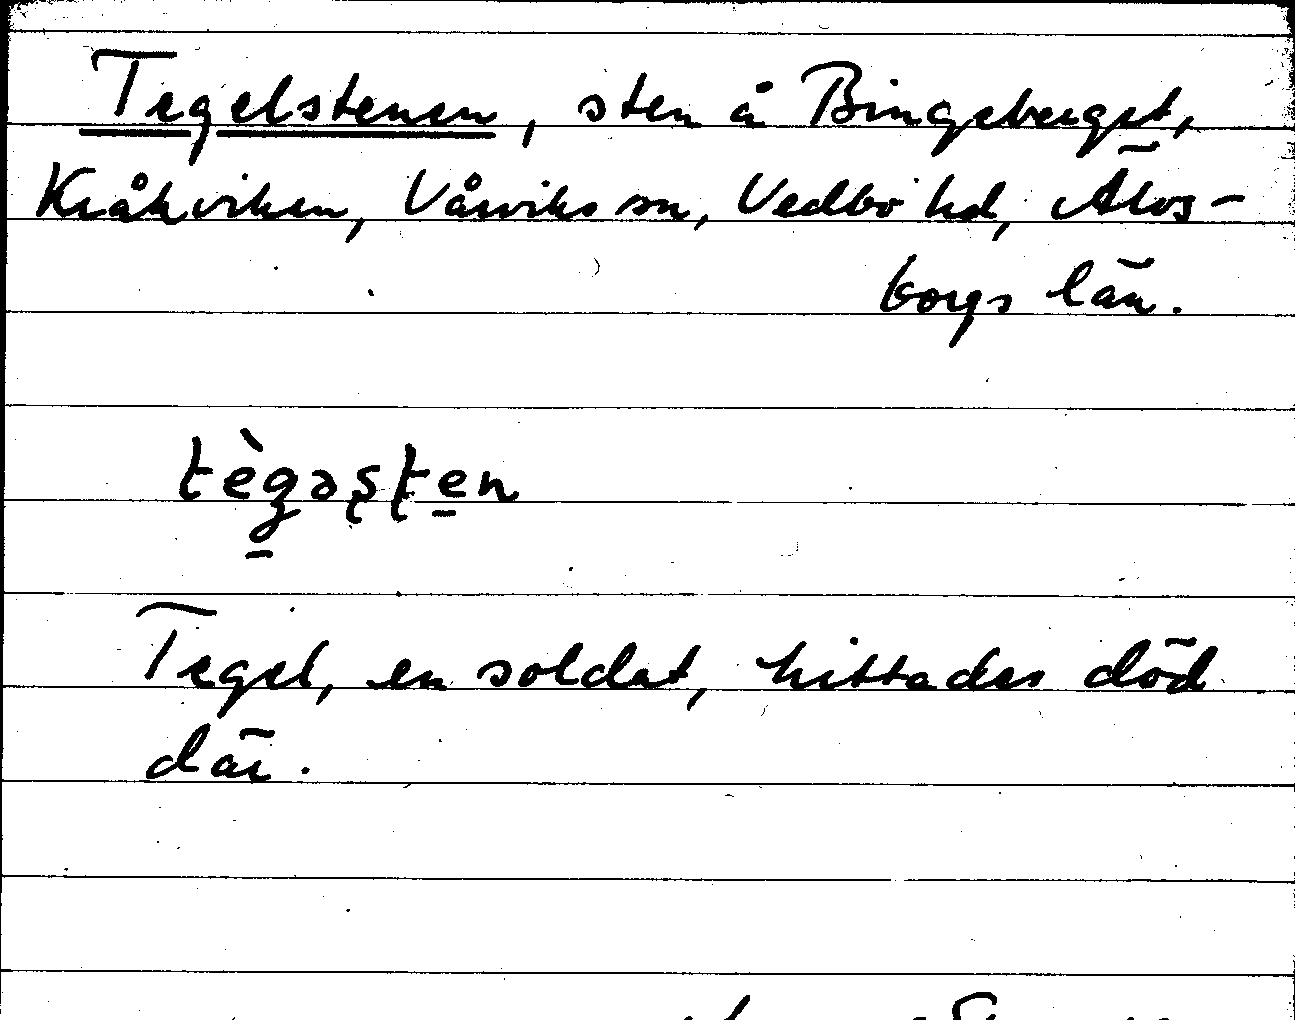 Tegelstenen, sten å Bingeberget,
Kråkviken, Vårviks sn, Vedbo hd, Älvs-
borgs län.
tègəsten
Tegel, en soldat, hittades död
där.